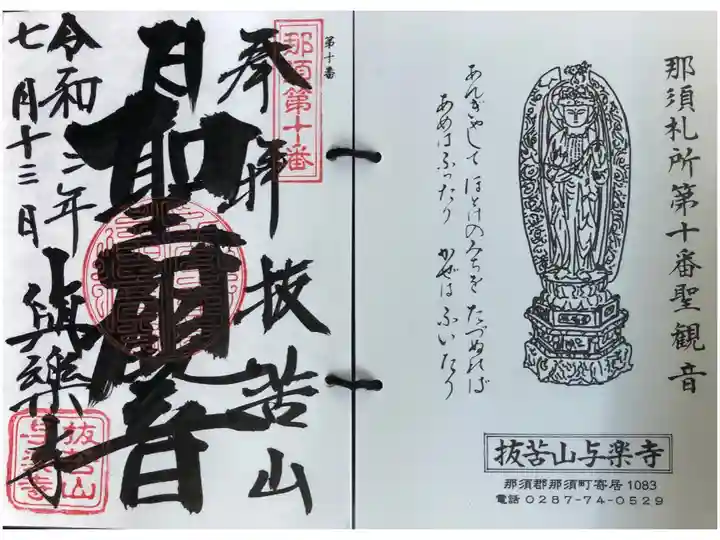 那須札所第十番聖観音
あんぎゃして ほとけのみちを たづぬれば
あめはふったり かぜはふいたり
抜苦山与楽寺
那須郡那須町寄居1083
電話 0287-74-0529
第十番
那須第十番
奉拝 抜苦山
聖観音
與樂寺
令和三年
七月十三日
抜苦山
与楽寺